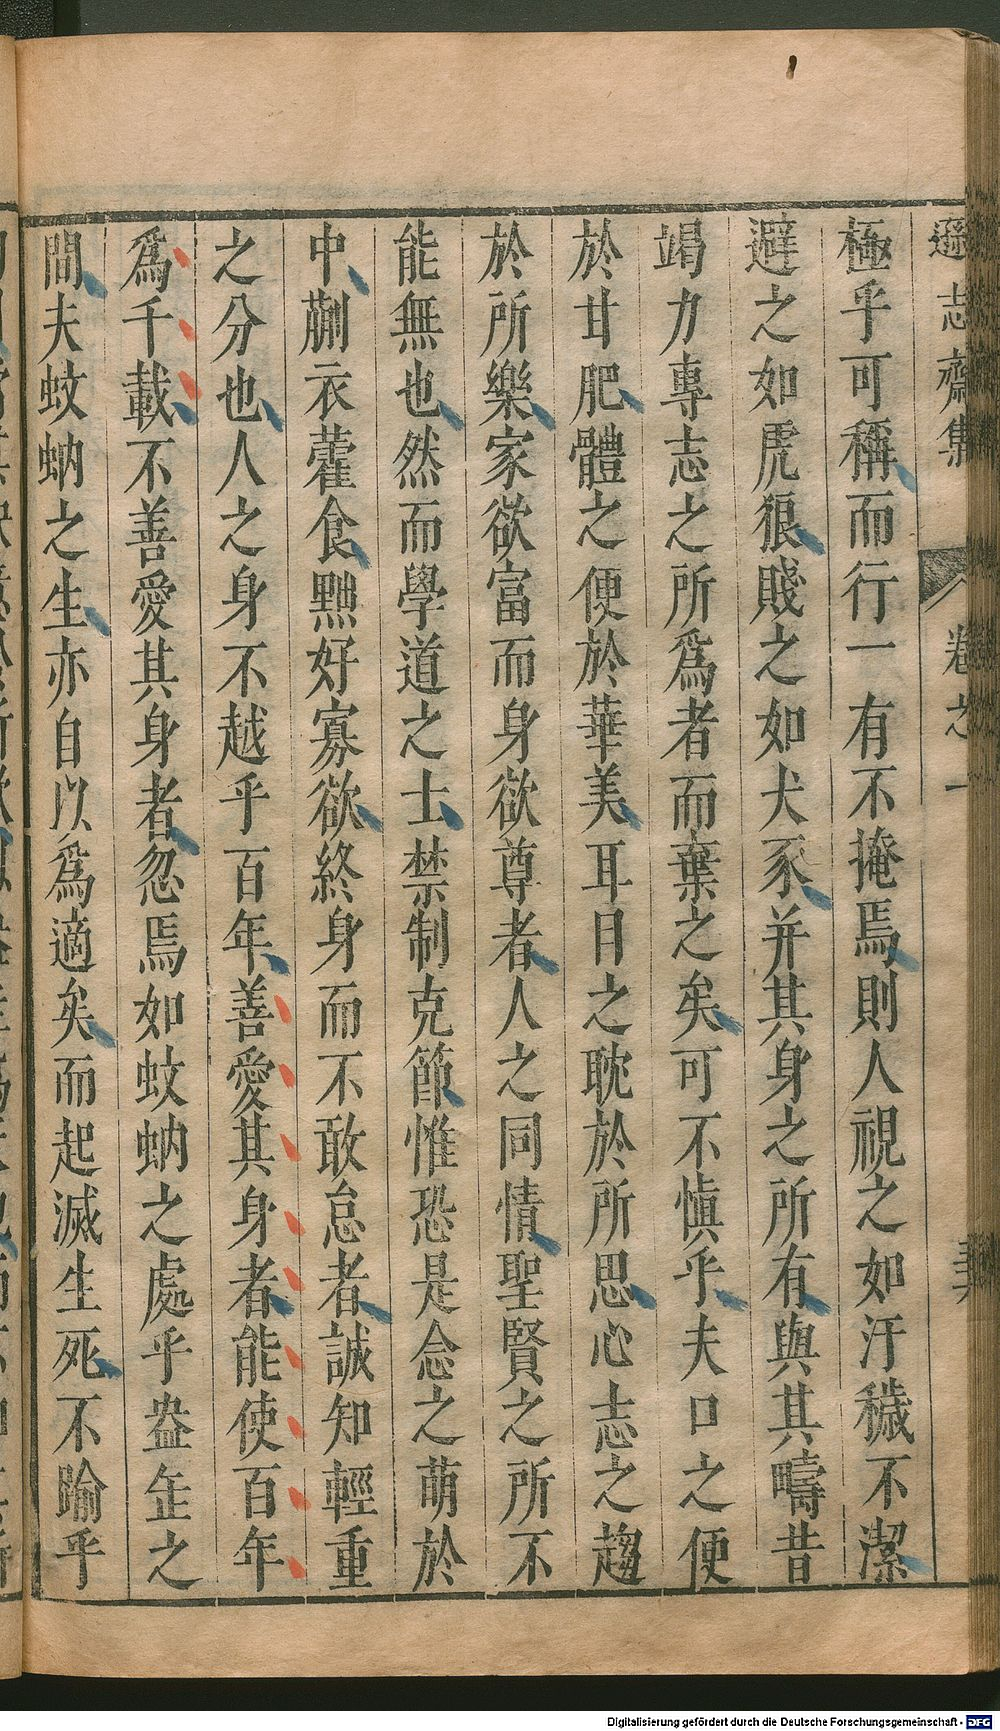 遜志齋集 卷之一
極乎可稱而行一有不掩焉則人視之如汙穢不潔
避之如虎狼賤之如犬豕并其身之所有與其疇昔
竭力專志之所爲者而棄之矣可不慎乎夫口之便
於甘肥體之便於華美耳目之耽於所思心志之趨
於所樂家欲富而身欲尊者人之同情聖賢之所不
能無也然而學道之士禁制克節惟恐是念之萌於
中蒯衣藿食黜好寡欲終身而不敢怠者誠知輕重
之分也人之身不越乎百年善愛其身者能使百年
爲千載不善愛其身者忽焉如蚊蚋之處乎盎缶之
間夫蚊蚋之生亦自以爲適矣而起滅生死不踰乎
Digitalisierung gefördert durch die Deutsche Forschungsgemeinschaft - DFG